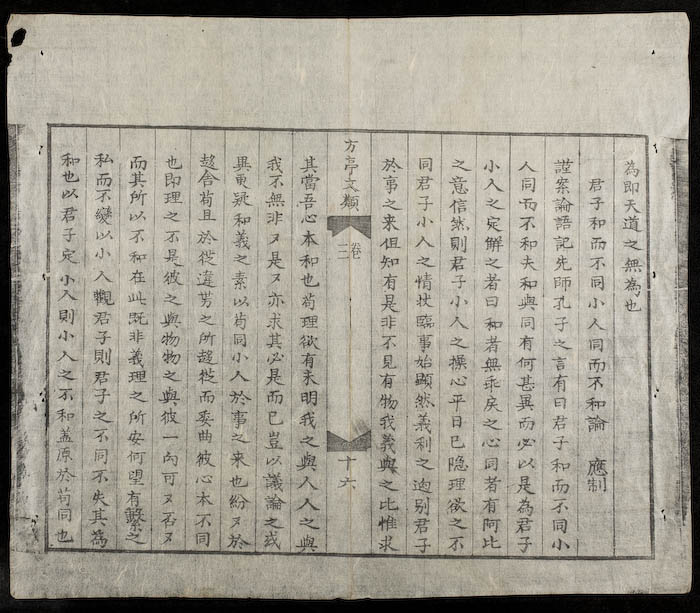 為即天道之無為也
君子和而不同小人同而不和論　應制
謹案論語記先師孔子之言有曰君子和而不同小
人同而不和夫和與同有何甚異而必以是為君子
小人之定解之者曰和者無乖戾之心同者有阿比
之意信然則君子小人之操心平日已隐理欲之不
同君子小人之情狀臨事始顯然義利之逈别君子
於事之來但知有是非不見有物我義與之比惟求
方亭文類
卷
三
十六
其當吾心本和也苟理欲有未明我之與人人之與
我不無非〻是〻亦求其必是而已豈以議論之或
異更疑和義之素以苟同小人於事之來也紛〻於
趍舍苟且於從違芳之所趍從而委曲彼心本不同
也即理之不是彼之與物物之與彼一向可〻否〻
而其所以不和在此既非義理之所安何望有繫之
私而不變以小人觀君子則君子之不同不失其為
和也以君子定小人則小人之不和盖原於苟同也